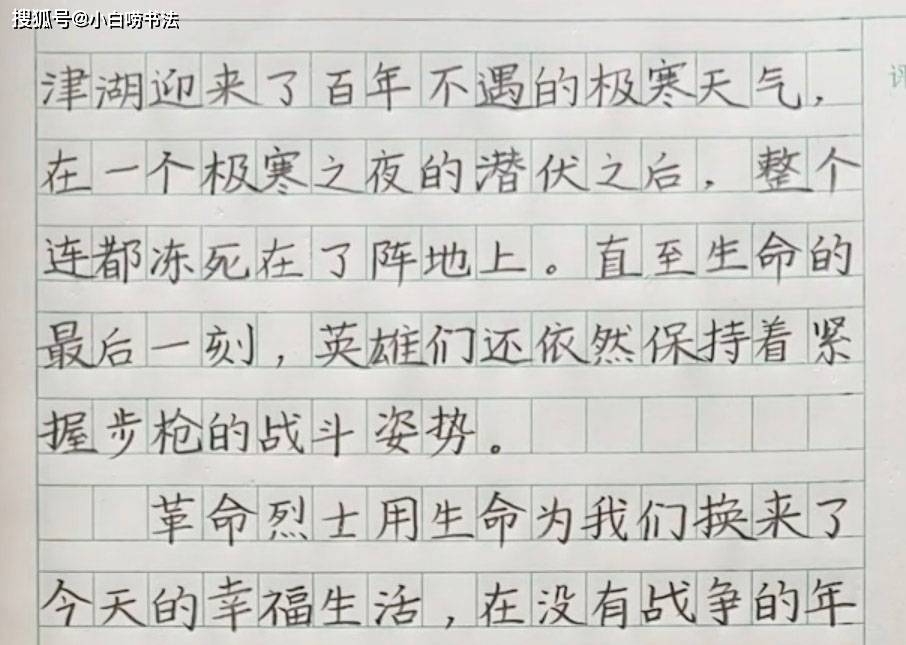 搜狐号@小白唠书法
津湖迎来了百年不遇的极寒天气，
在一个极寒之夜的潜伏之后，整个
连都冻死在了阵地上。直至生命的
最后一刻，英雄们还依然保持着紧
握步枪的战斗姿势。
革命烈士用生命为我们换来了
今天的幸福生活，在没有战争的年